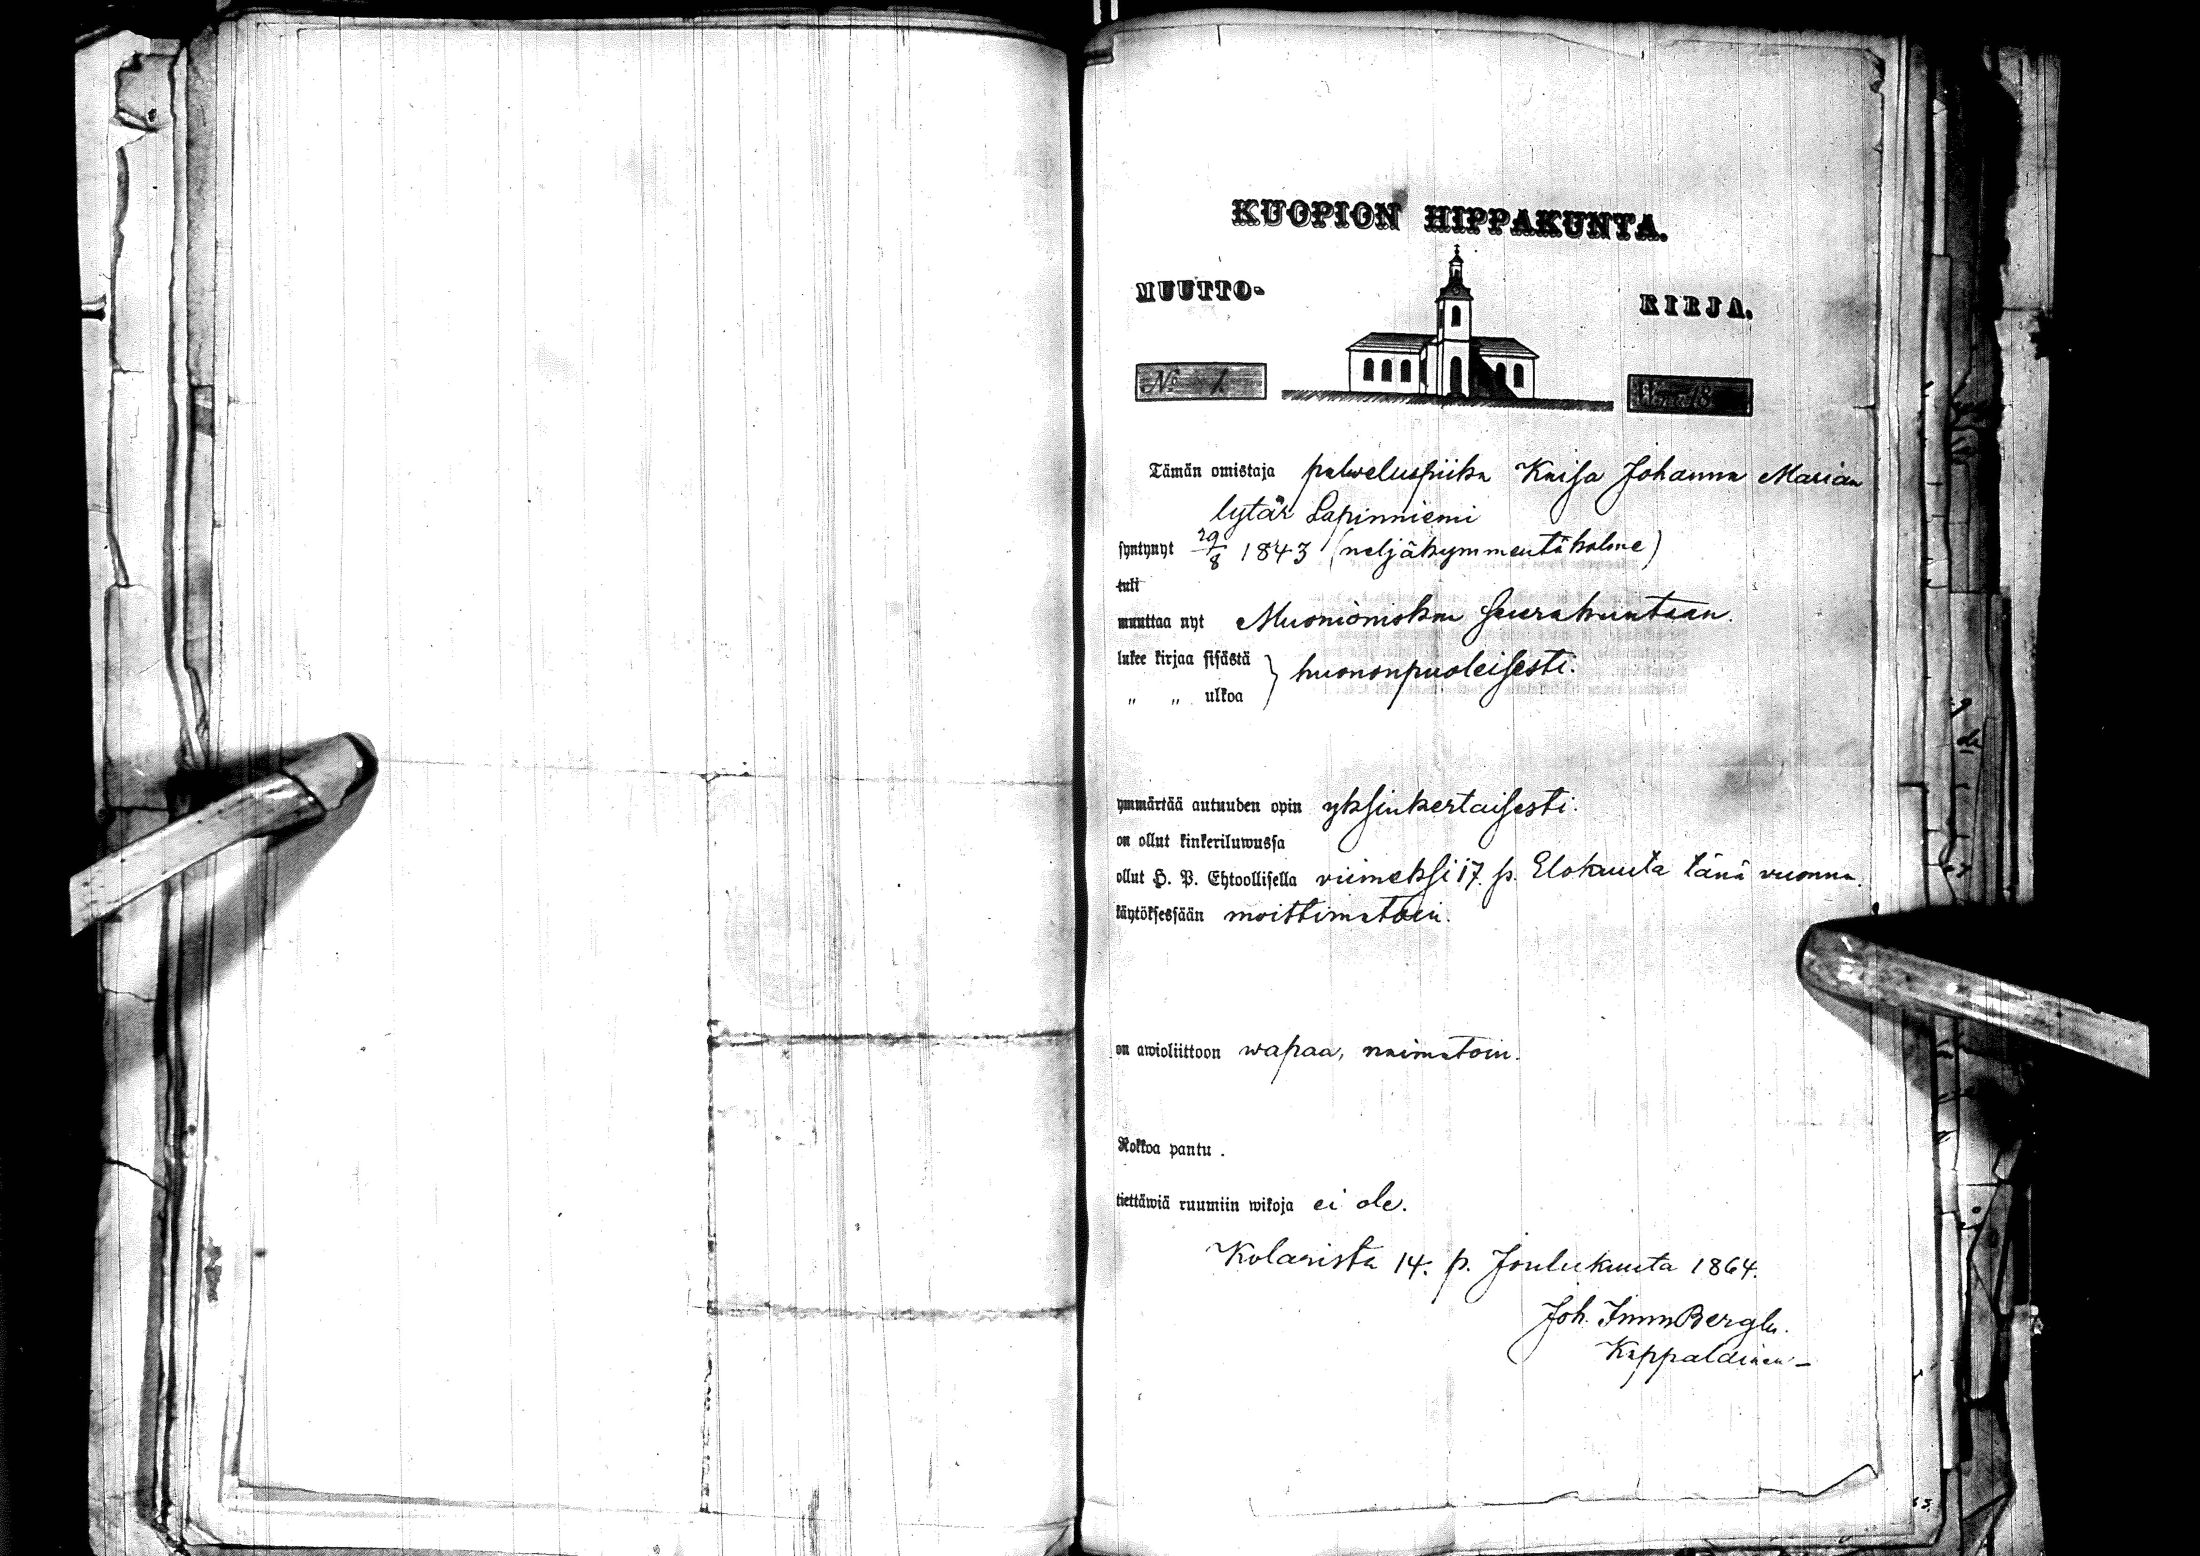 KUOPION HIPPAKUNTA.
MUUTTO- KIRJA.
No 1. W. 18
Tämän omistaja palweluspiika Kaisa Johanna Marian
tytär Lapinniemi
syntynyt 29/8 1843 (neljäkymmentäkolme)
tuli
muuttaa nyt Muonioniskan Seurakuntaan.
lukee kirjaa sisästä } huononpuoleisesti.
„ „ ulkoa
ymmärtää autuuden opin yksinkertaisesti.
on ollut kinkeriluwussa
ollut H. P. Ehtoollisella viimeksi 17. p. Elokuuta tänä vuonna.
käytöksessään moittimatoin.
on awioliittoon wapaa, naimatoin.
Rokkoa pantu.
tiettäwiä ruumiin wikoja ei ole.
Kolarista 14. p. Joulukuuta 1864.
Joh. Bergh.
Kappalainen